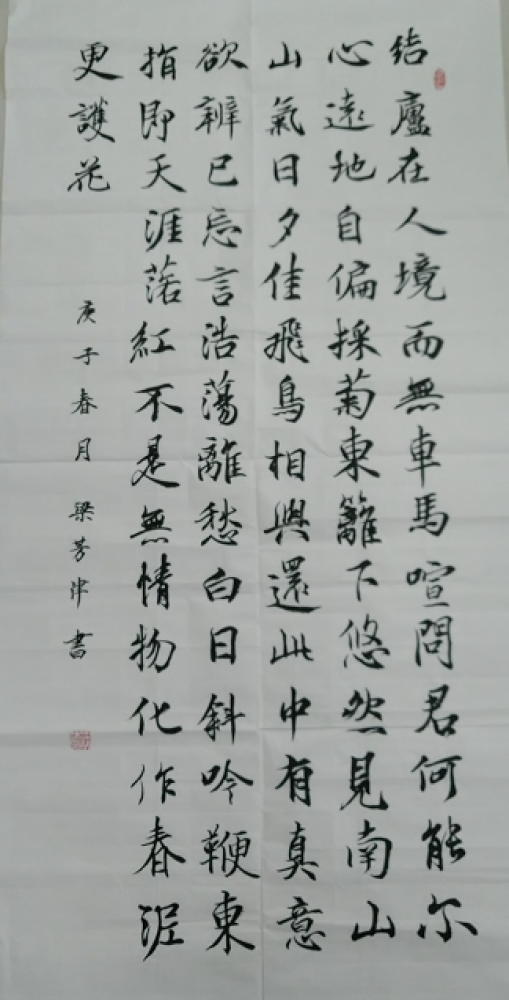 结廬在人境而無車馬喧問君何能尔
心遠地自偏採菊東籬下悠然見南山
山氣日夕佳飛鳥相與還此中有真意
欲辨已忘言浩蕩離愁白日斜吟鞭東
指即天涯落紅不是無情物化作春泥
更護花
庚子春月 梁芳津書